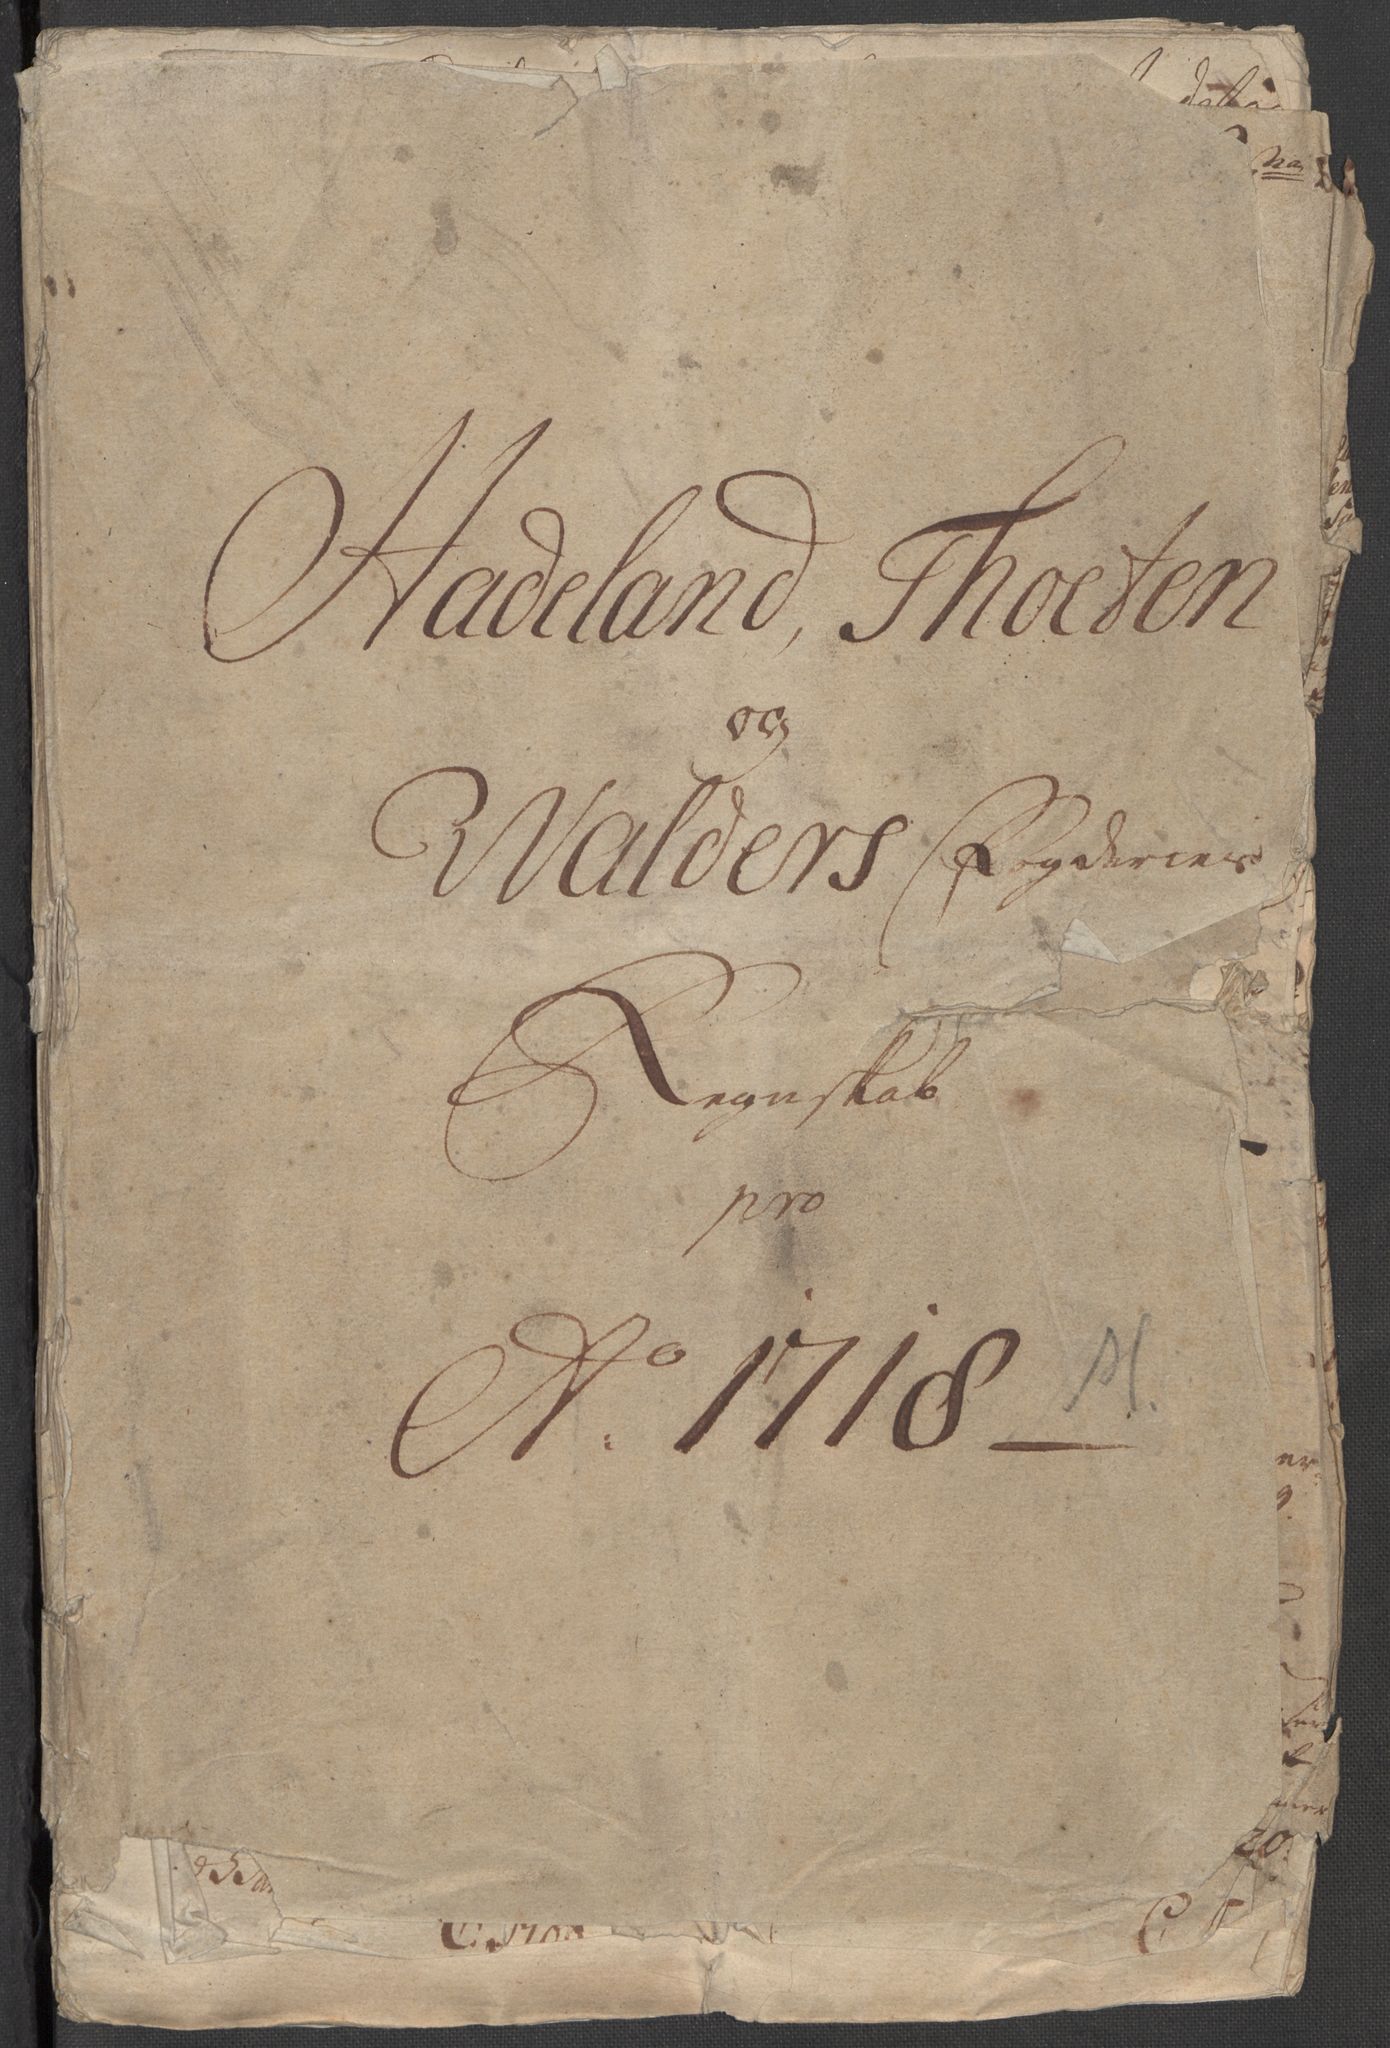 Hadeland, Thoeten
og
Walders Fogderier
Regnskab
pro
Ao. 1718